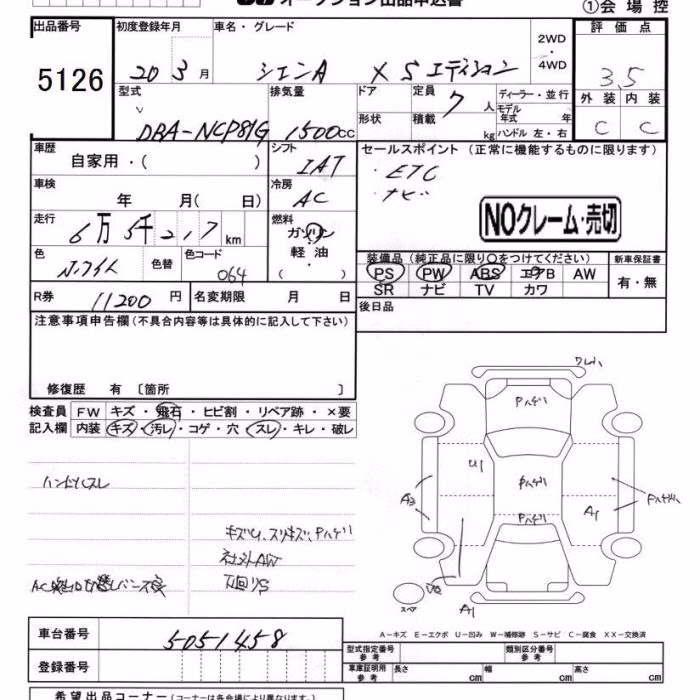 オークション出品申込書
①会場控
出品番号
5126
初度登録年月
20 3月
車名・グレード
シエンタ X Sエディション
2WD
・
4WD
評価点
3.5
外装 内装
C C
型式
DBA-NCP81G
排気量
1500cc
ドア
形状
定員
7人
積載
kg
ディーラー・並行
モデル
年式 年
ハンドル 左・右
車歴
自家用・( )
シフト
IAT
セールスポイント (正常に機能するものに限ります)
・ETC
・ナビ
NOクレーム・売切
車検
年 月( 日)
冷房
AC
走行
6万5千217km
燃料
ガソリン
軽油
( )
色
色替
色コード
064
装備品 (純正品に限り○をつけてください)
PS PW ABS エアB AW
SR ナビ TV カワ
新車保証書
有・無
R券
11200円
名変期限 月 日
後日品
注意事項申告欄(不具合内容等は具体的に記入して下さい)
修復歴 有 〔箇所 〕
検査員 FW キズ・飛石・ヒビ割・リペア跡・×要
記入欄 内装 キズ・汚レ・コゲ・穴・スレ・キレ・破レ
ハンドルスレ
キズ凹、スリキズ、Pハゲリ
社外AW
下回りS
Pハゲリ
U1
Pハゲリ
Pハゲリ
A2
A1
A1
スペア
A-キズ E-エクボ U-凹み W-補修跡 S-サビ C-腐食 XX-交換済
車台番号
5051458
登録番号
型式指定番号
参考
類別区分番号
参考
車庫証明用
参考
長さ cm
幅 cm
高さ cm
希望出品コーナー(コーナーは各会場により異なります。)